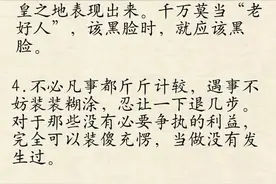 皇之地表现出来。千万莫当“老
好人”，该黑脸时，就应该黑
脸。
4.不必凡事都斤斤计较，遇事不
妨装装糊涂，忍让一下退几步。
对于那些没有必要争执的利益，
完全可以装傻充愣，当做没有发
生过。